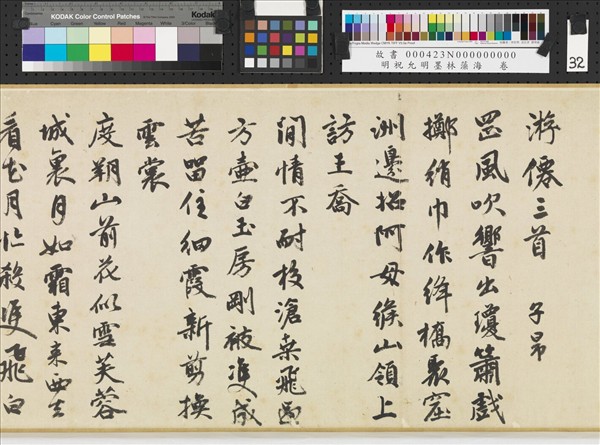 KODAK Color Control Patches
Kodak
故書 000423N000000000
明祝允明墨林藻海 卷
32
游僊三首 子昂
罡風吹響出瓊簫戲
擲綃巾作絳橋聚窟
洲邊招阿母緱山領上
訪王喬
閒情不耐校滄桒飛過
方壷白玉房剛被雙成
苦留住細霞新剪換
雲裳
度朔山前花似雪芙蓉
城裏月如霜東來西去
看花月忙殺雙飛白